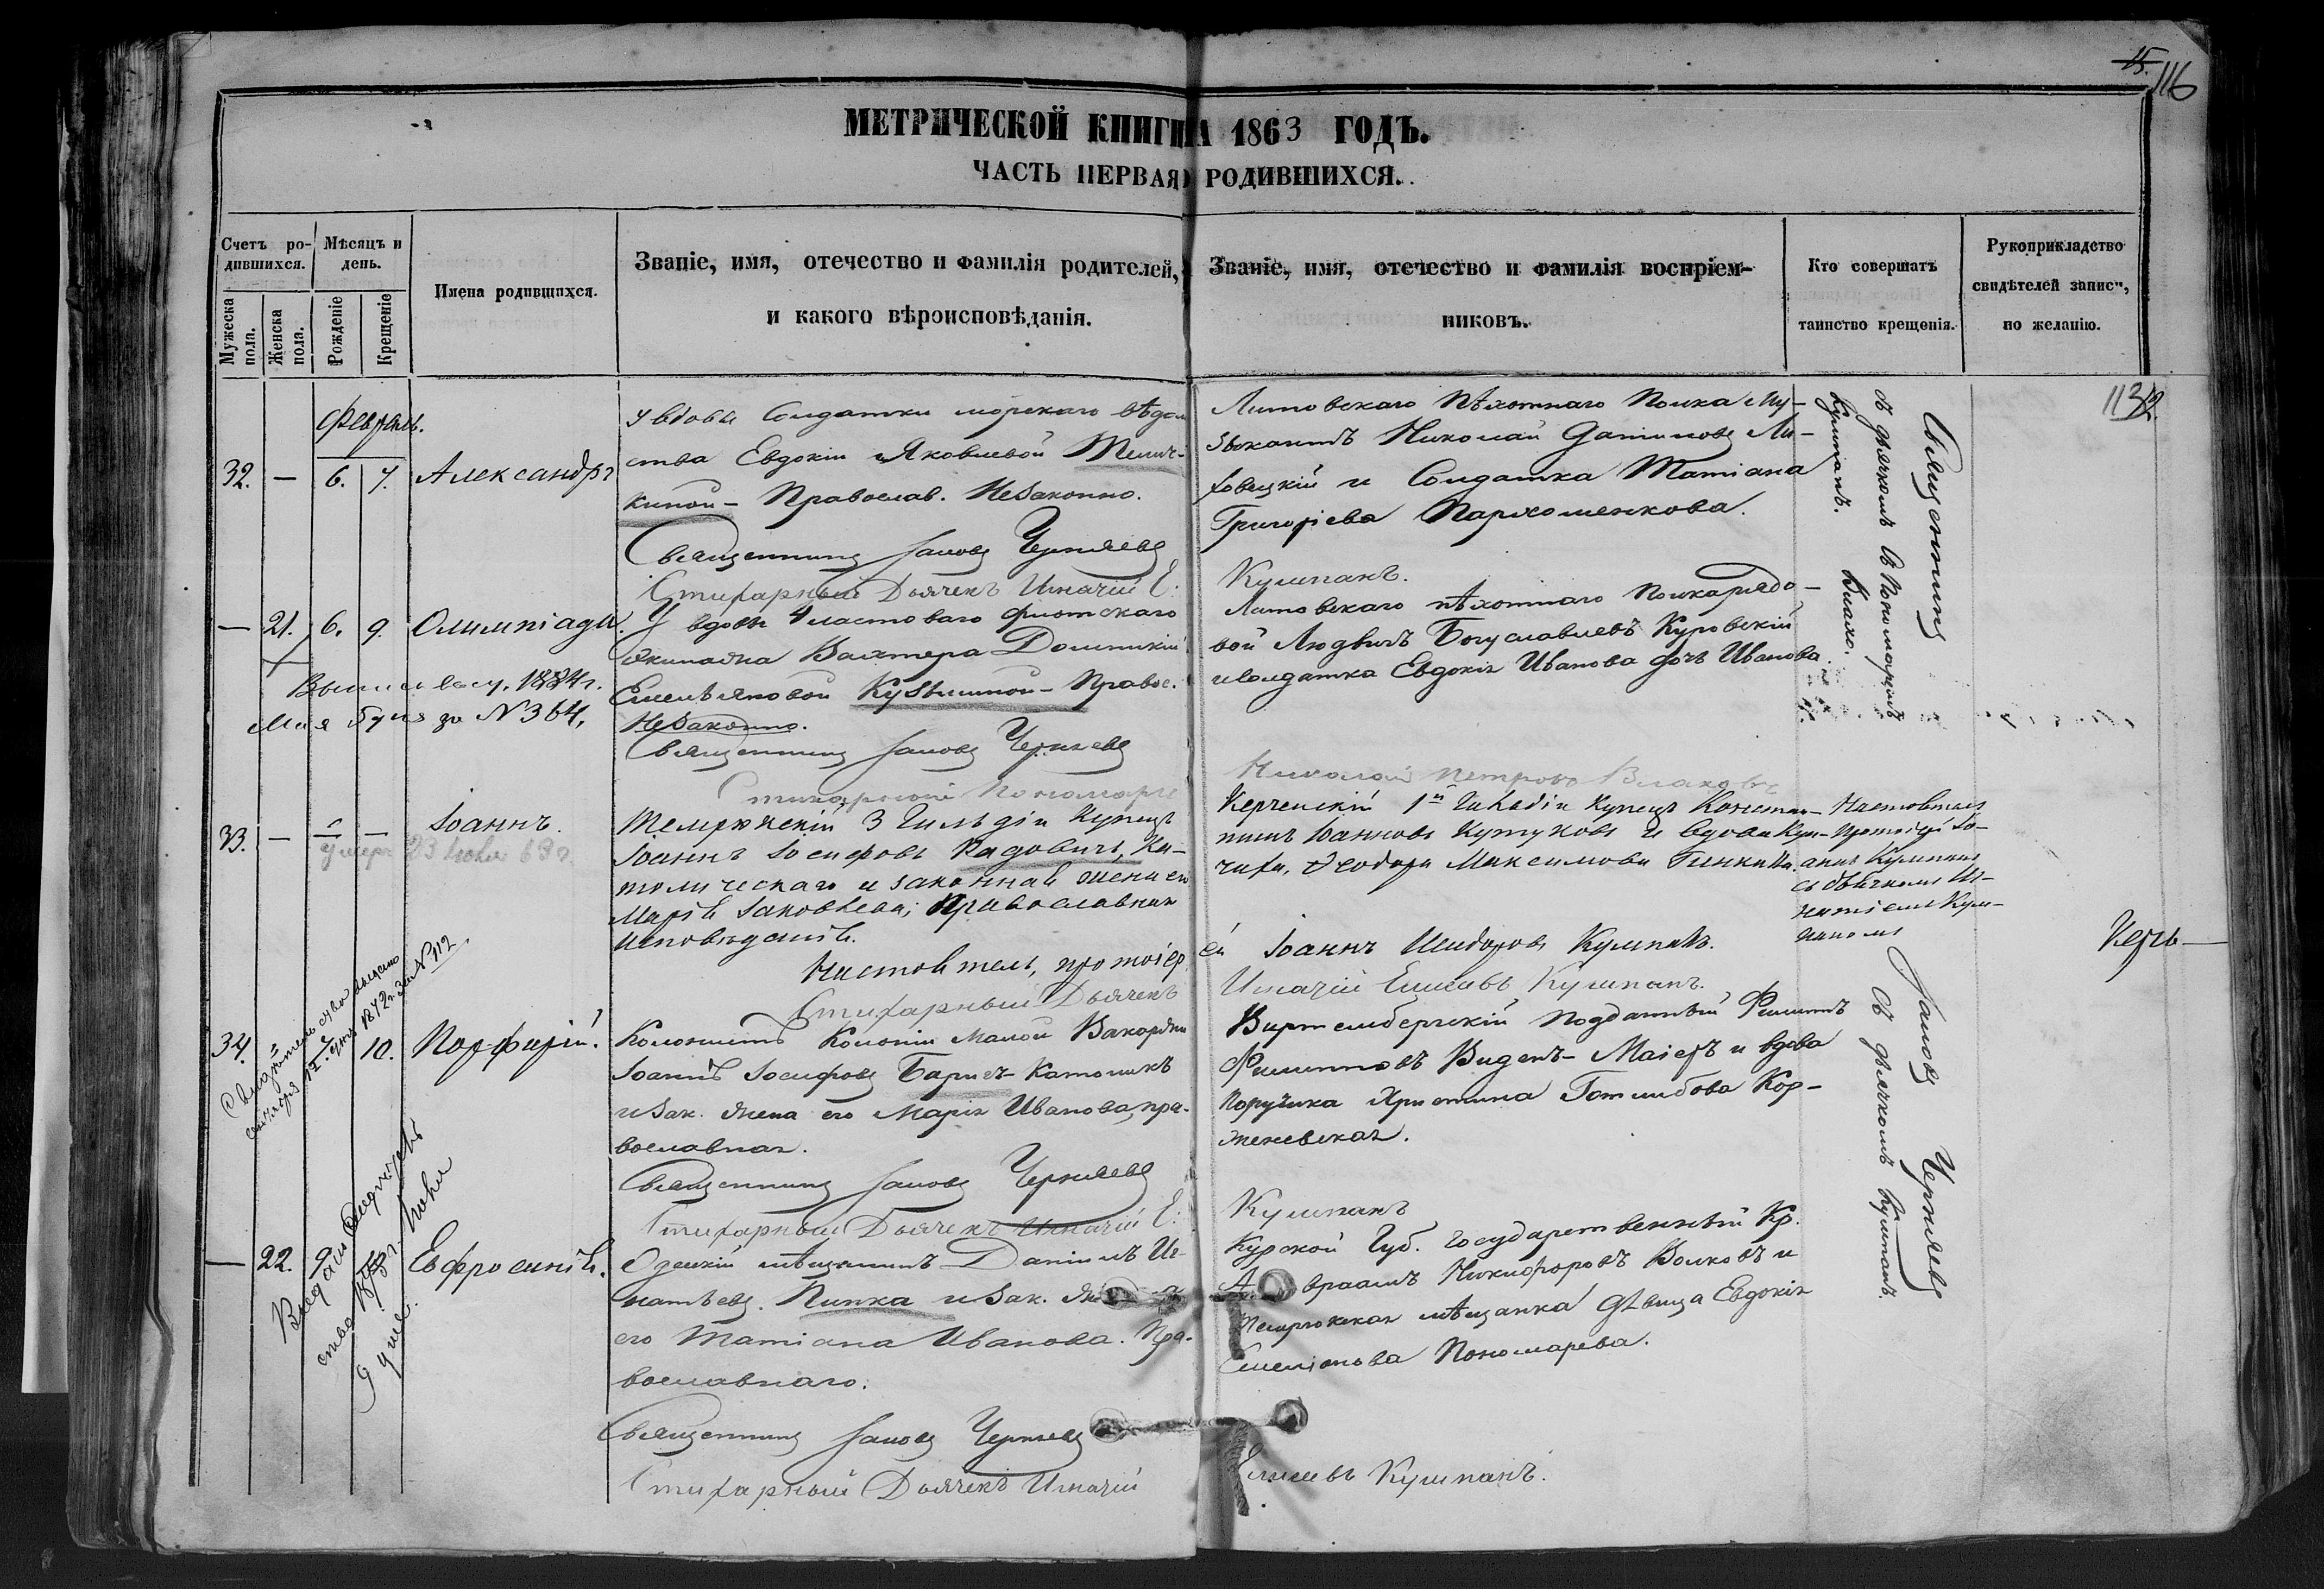 15.
116
МЕТРИЧЕСКОЙ КНИГИ НА 1863 ГОДЪ.
ЧАСТЬ ПЕРВАЯ О РОДИВШИХСЯ.
Счетъ ро-
дившихся.
Мужеска
пола.
Женска
пола.
Мѣсяцъ и
день.
Рожденіе
Крещеніе
Имена родившихся.
Званіе, имя, отечество и фамилія родителей,
и какого вѣроисповѣданія.
Званіе, имя, отечество и фамилія воспріем-
никовъ.
Кто совершатъ
таинство крещенія.
Рукоприкладство
свидѣтелей записи,
по желанію.
Февраль.
32. — 6. 7. Александръ
У вдовы Солдатки морскаго вѣдом
ства Евдокіи Яковлевой
киной - Православ. Незаконно.
Священникъ Іаковъ Черняевъ
Стихарный Дьячекъ Игнатій Е.
Литовскаго Пѣхотнаго Полка Му-
зыкантъ Николай
и Солдатка Татіана
Григоріева Пархоменкова.
Кушпанъ.
Священникъ
съ дьячкомъ и Пономаремъ
Кушпанъ. Влахо.
— 21. 6. 9. Олимпіада.
У вдовы 4 ластоваго флотскаго
экипажа Вахтера Домникіи
Емельяновой Кузьминой - Правос.
Незаконно.
Священникъ Іаковъ Черняевъ
Стихарный Пономарь
Литовскаго пѣхотнаго Полка рядо-
вой Людвигъ Богуславлевъ Куровскій
и солдатка Евдокія Иванова дочь Иванова.
Николай Петровъ Влаховъ
1884 г.
Мая за N 364,
33. — — — Іоаннъ.
умеръ 23 Іюля 63 г.
Темрюкскій 3 Гильдіи Купецъ
Іоаннъ Іосифовъ Радовичъ, Ка-
толическаго и законная жена его
Марія Іаковлева; Православнаго
Исповѣданія.
Настоятель, протоіер
ей Іоаннъ Исидоровъ Кушпанъ.
Стихарный Дьячекъ
Игнатій Елисевъ Кушпанъ.
Керченскій 1й Гильдіи Купецъ Констан-
тинъ Іоанновъ Кутуковъ и Вдова Куп-
чиха, Ѳеодора Максимова Гинкина.
Настоятель
Протоіерей Іо-
аннъ Кушпанъ
съ дьячкомъ Иг-
натіемъ Куш-
паномъ
Керчь
34. 10. Порфирій.
1872 г. за N 112
Колонистъ Колоніи Малой
Іоаннъ Іосифовъ Барисъ - Католикъ
и зак. жена его Марія Иванова, пра-
вославная.
Священникъ Іаковъ Черняевъ
Стихарный Дьячекъ Игнатій Е.
Виртембергскій подданный Филиппъ
Филипповъ Виденъ - Маіеръ и вдова
Поручика Христина Готлибова Кор-
женевская.
Кушпанъ
Іаковъ Черняевъ
съ дьячкомъ Кушпанъ.
— 22. 9. Евфросинія.
Одескій мѣщанинъ Даніилъ Иг-
натьевъ Пипка и зак. жена
его Татіана Иванова. Пра-
вославнаго.
Священникъ Іаковъ Черняевъ
Стихарный Дьячекъ Игнатій
Курской Губ. государственный Кр.
Авраамъ Никифоровъ Волковъ и
Темрюкская мѣщанка дѣвица Евдокія
Емеліанова Пономарева.
Елисевъ Кушпанъ.